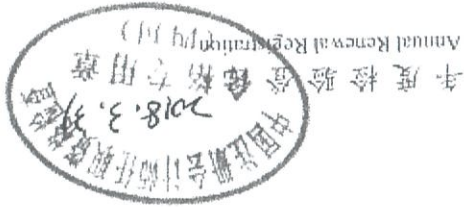 中国注册会计师任职资格检查
2018.3.
年度检验登 格专用章
Annual Renewal Registration